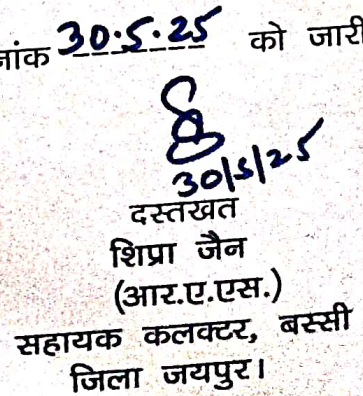 नांक 30.5.25 को जारी
30/5/25
दस्तखत
शिप्रा जैन
(आर.ए.एस.)
सहायक कलक्टर, बस्सी
जिला जयपुर।